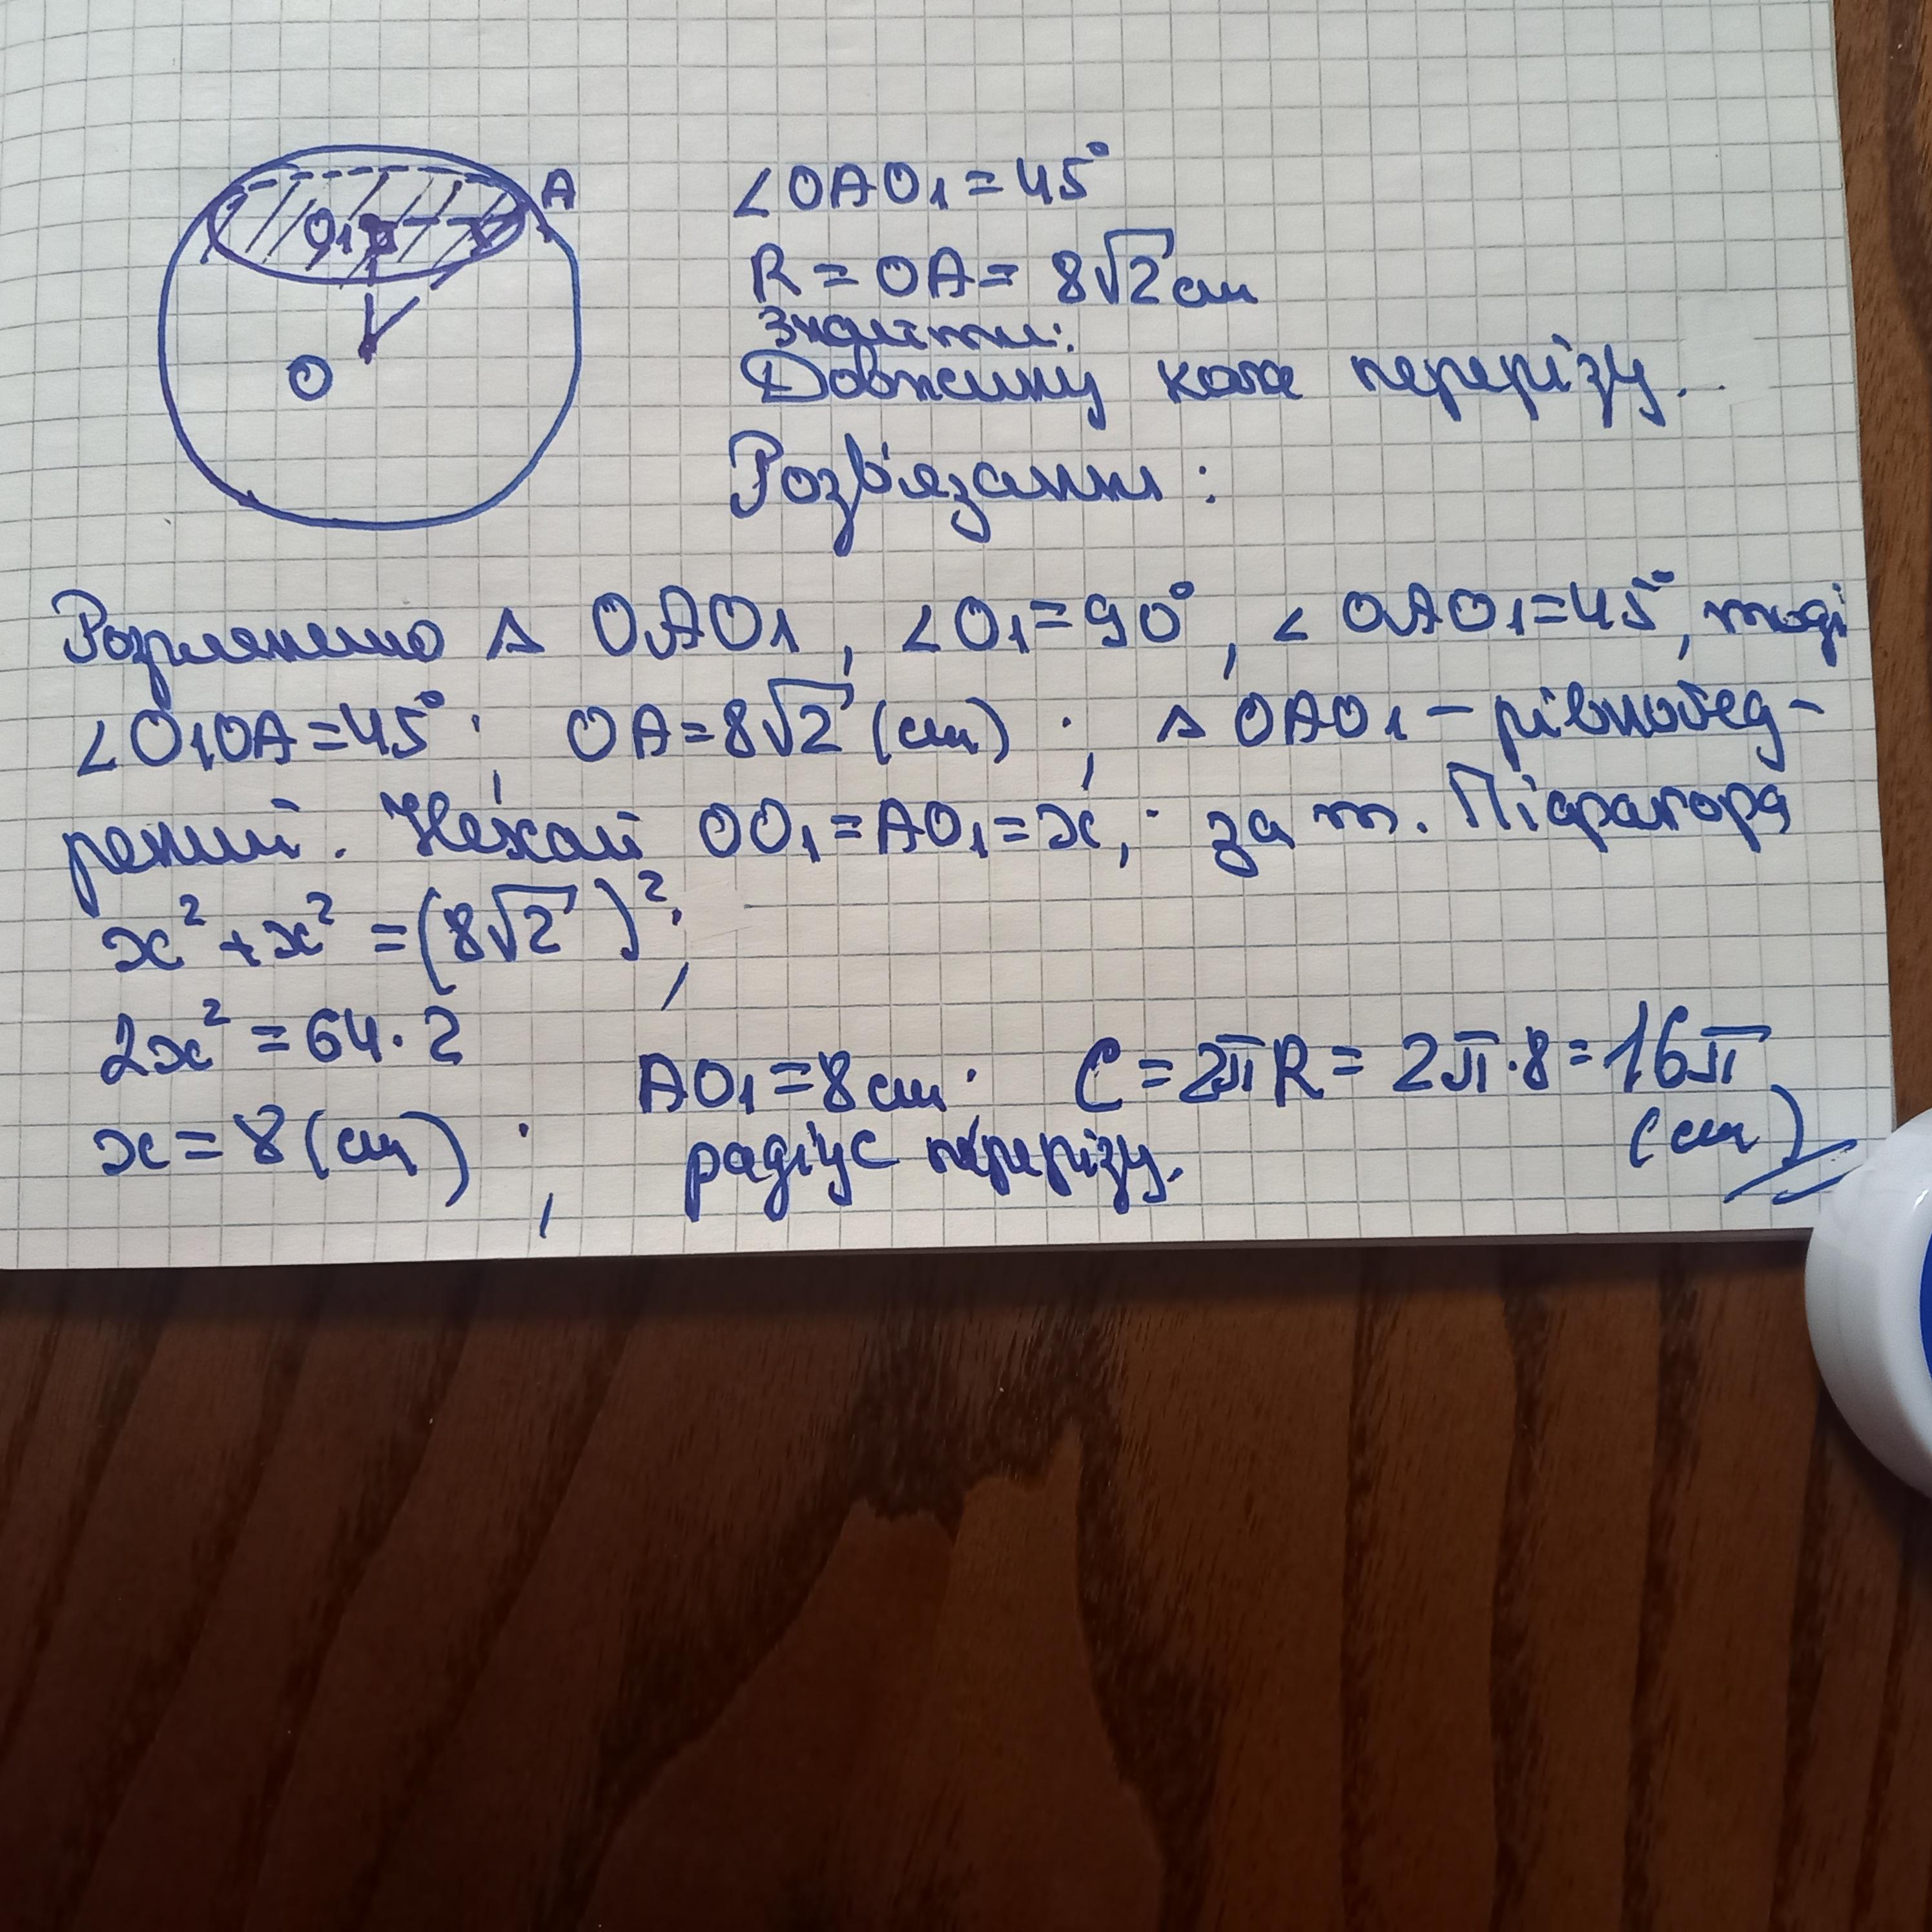 A
O₁
O
∠OAO₁ = 45°
R = OA = 8√2 см
Знайти:
Довжину кола перерізу.
Розв'язання:
Розглянемо △ OAO₁, ∠O₁=90°, ∠OAO₁=45°, тоді
∠O₁OA=45°; OA=8√2 (см); △ OAO₁ – рівнобед-
рений. Нехай OO₁=AO₁=x; за т. Піфагора
x² + x² = (8√2)²;
2x² = 64·2
x = 8 (см);
AO₁=8 см; C = 2πR = 2π·8 = 16π
(см)
радіус перерізу.